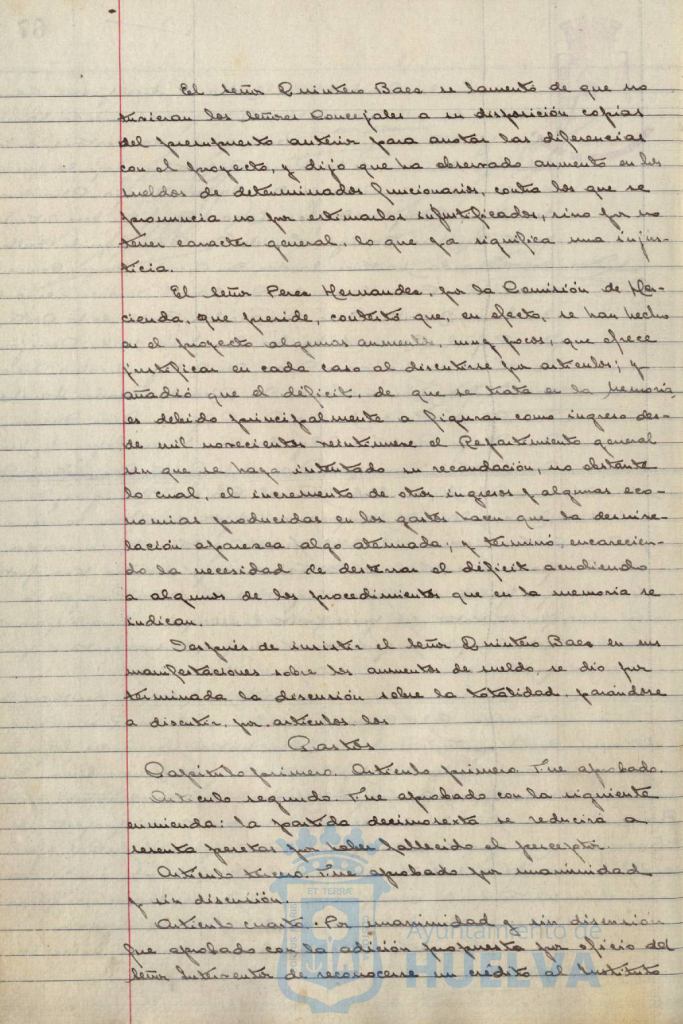 El Señor Quintero Baez se lamentó de que no
tuvieran los Señores Concejales a su disposición copias
del presupuesto anterior para anotar las diferencias
con el proyecto, y dijo que ha observado aumento en los
sueldos de determinados funcionarios, contra los que se
pronuncia no por estimarlos injustificados, sino por no
tener caracter general, lo que ya significa una injus-
ticia.
El Señor Perez Hernandez, por la Comisión de Ha-
cienda, que preside, contestó que, en efecto, se han hecho
en el proyecto algunos aumentos, muy pocos, que ofrece
justificar en cada caso al discutirse por artículos; y
añadió que el déficit, de que se trata en la Memoria,
es debido principalmente a figurar como ingreso des-
de mil novecientos veintinueve el Repartimiento general
sin que se haya intentado su recaudación, no obstante
lo cual, el incremento de otros ingresos y algunas eco-
nomias producidas en los gastos hacen que la desnive-
lación aparezca algo atenuada; y terminó, encarecien-
do la necesidad de desterrar el déficit acudiendo
a algunos de los procedimientos que en la memoria se
indican.
Después de insistir el Señor Quintero Baez en sus
manifestaciones sobre los aumentos de sueldo, se dio por
terminada la discusión sobre la totalidad, pasándose
a discutir, por artículos los
Gastos
Capítulo primero. Artículo primero. Fue aprobado.
Artículo segundo. Fue aprobado con la siguiente
enmienda: la partida decimosexta se reducirá a
sesenta pesetas por haber fallecido el perceptor.
Artículo tercero. Fue aprobado por unanimidad
y sin discusión.
Artículo cuarto. Por unanimidad y sin discusión
fue aprobado con la adición propuesta por oficio del
Señor Interventor de reconocerse un crédito al Instituto
ET TERRÆ
Ayuntamiento de
HUELVA